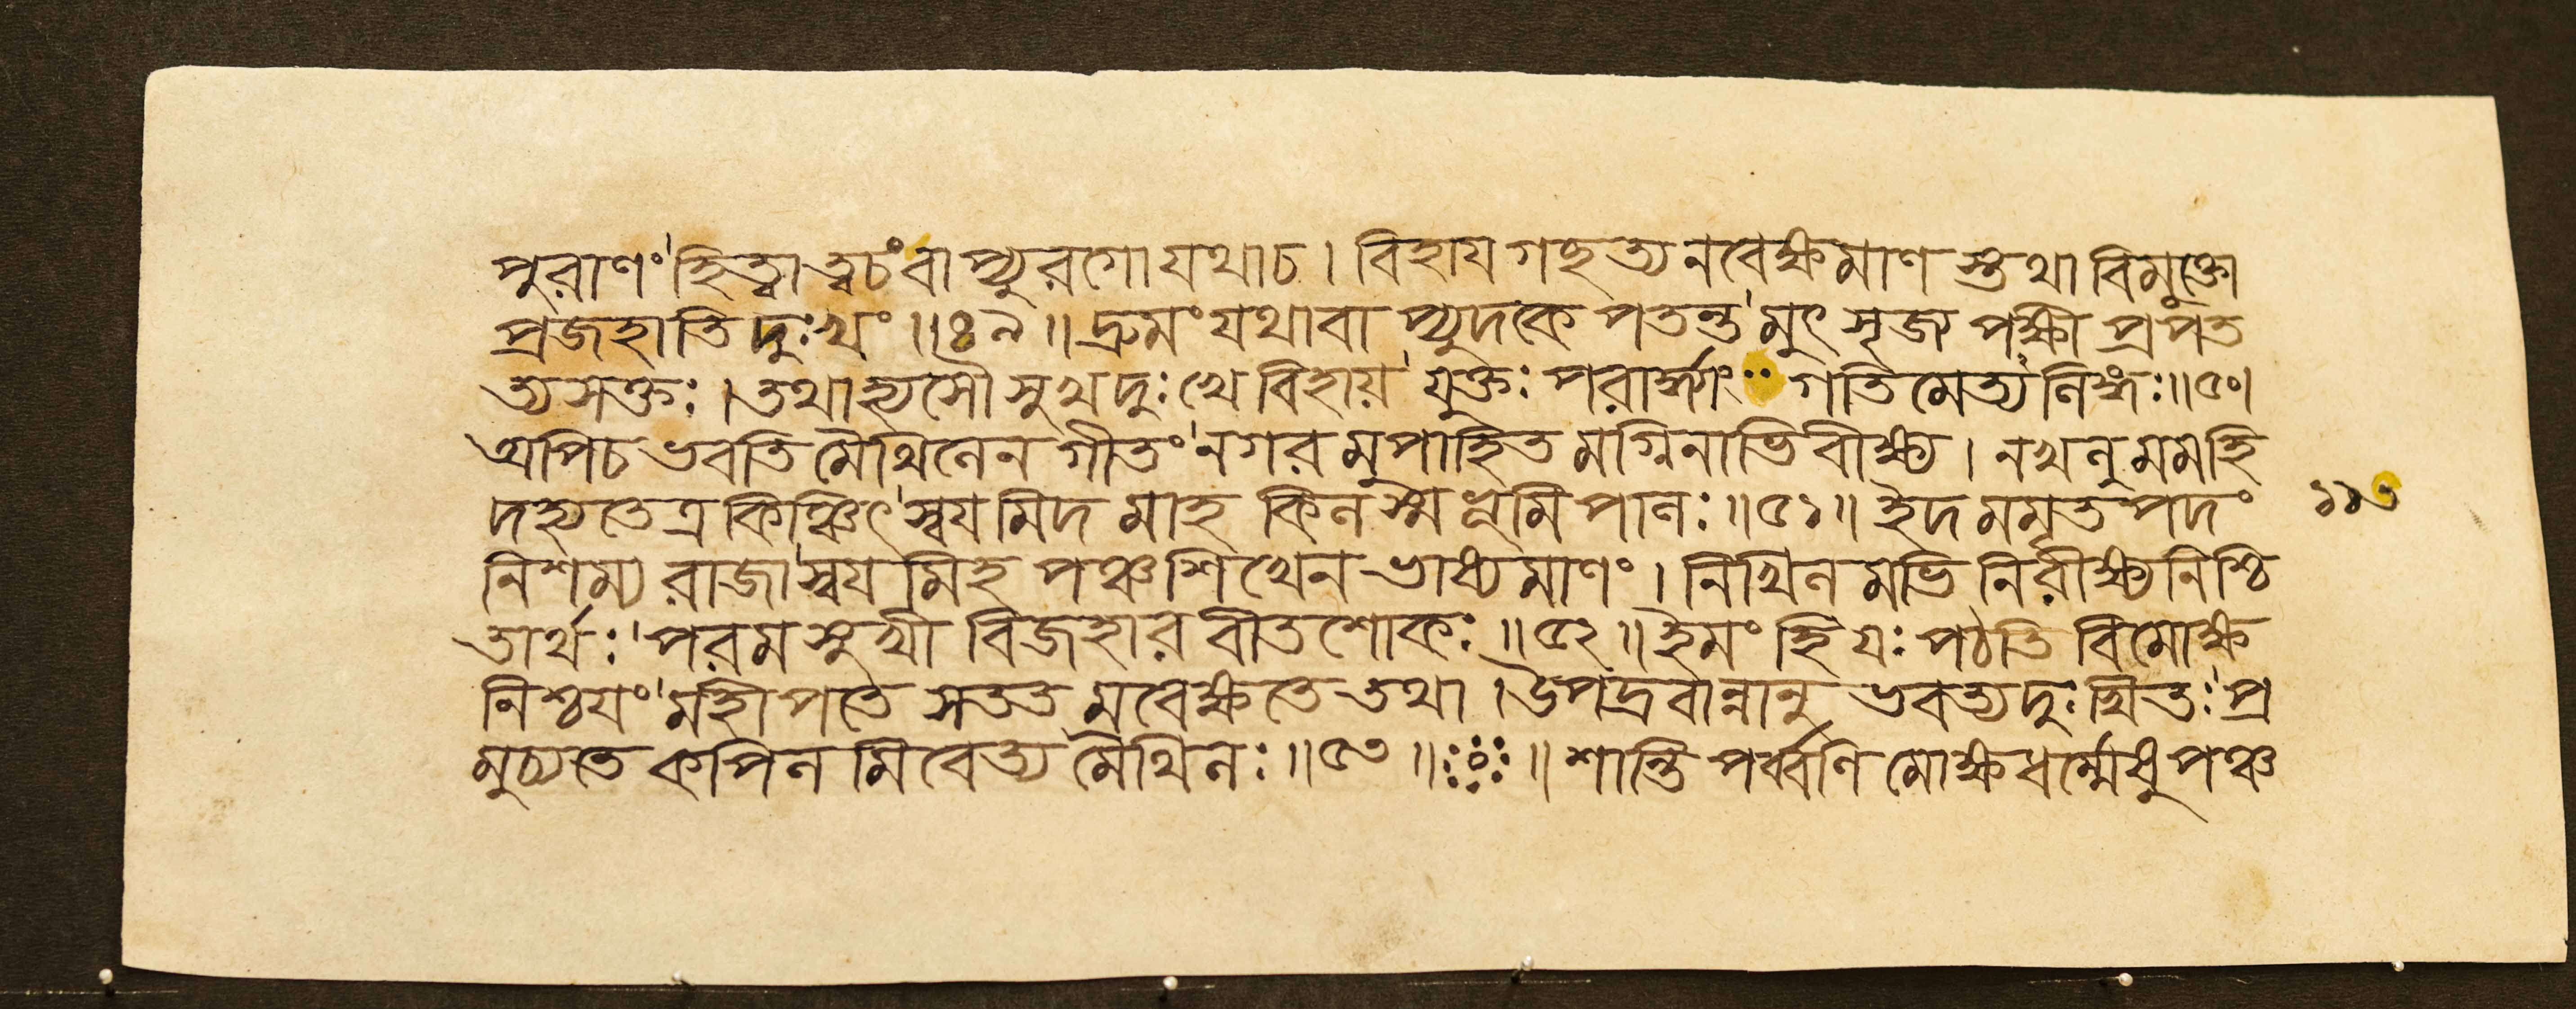 পুরাণং হিত্বা ত্বচং বাপ্যুরগো যথা চ । বিহায গছত্যনবেক্ষমাণ স্তথা বিমুক্তো
প্রজহাতি দুঃখং ॥৪৯॥ দ্রুমং যথা বাপ্যুদকে পতন্ত'মুৎসৃজ্য পক্ষী প্রপত
ত্যসক্তঃ । তথাহ্যসৌ সুখদুঃখে বিহায়' মুক্তঃ পরার্দ্ধ্যাং গতিমেত্যনিঙ্গঃ ॥৫০।
অপিচ ভবতি মৈথিলেন গীতং' নগরমুপাহিতমগ্নিনাভিবীক্ষ্য । নখলু মমহি
দহ্যতেত্র কিঞ্চিৎ' স্বযমিদমাহ কিলস্ম ভূমিপালঃ ॥৫১॥ ইদমমৃতপদং
১১৩
নিশম্য রাজা' স্বযমিহ পঞ্চশিখেন ভাষ্যমাণং । নিখিলমভিনিরীক্ষ্য নিশ্চি
তার্থঃ' পরমসুখী বিজহার বীতশোকঃ ॥৫২॥ ইমং হি যঃ পঠতি বিমোক্ষ
নিশ্চযং' মহীপতে সততমবেক্ষতে তথা । উপদ্রবান্নানুভবত্যদুঃখিতঃ' প্র
মুচ্যতে কপিলমিবেত্য মৈথিলঃ ॥৫৩॥ ॥ শান্তিপর্ব্বণি মোক্ষধর্ম্মেষু পঞ্চ